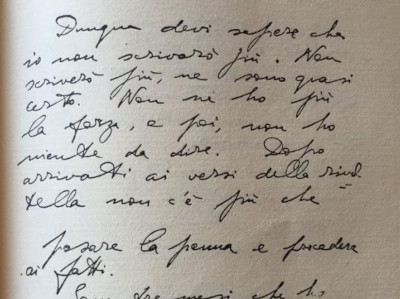 Dunque devi sapere che
io non scriverò più. Non
scriverò più, ne sono quasi
certo. Non ne ho più
la forza, e poi, non ho
niente da dire. Dopo
arrivati ai versi della rivol-
tella non c'è più che
posare la penna e procedere
ai fatti.
Sono tre mesi che ho